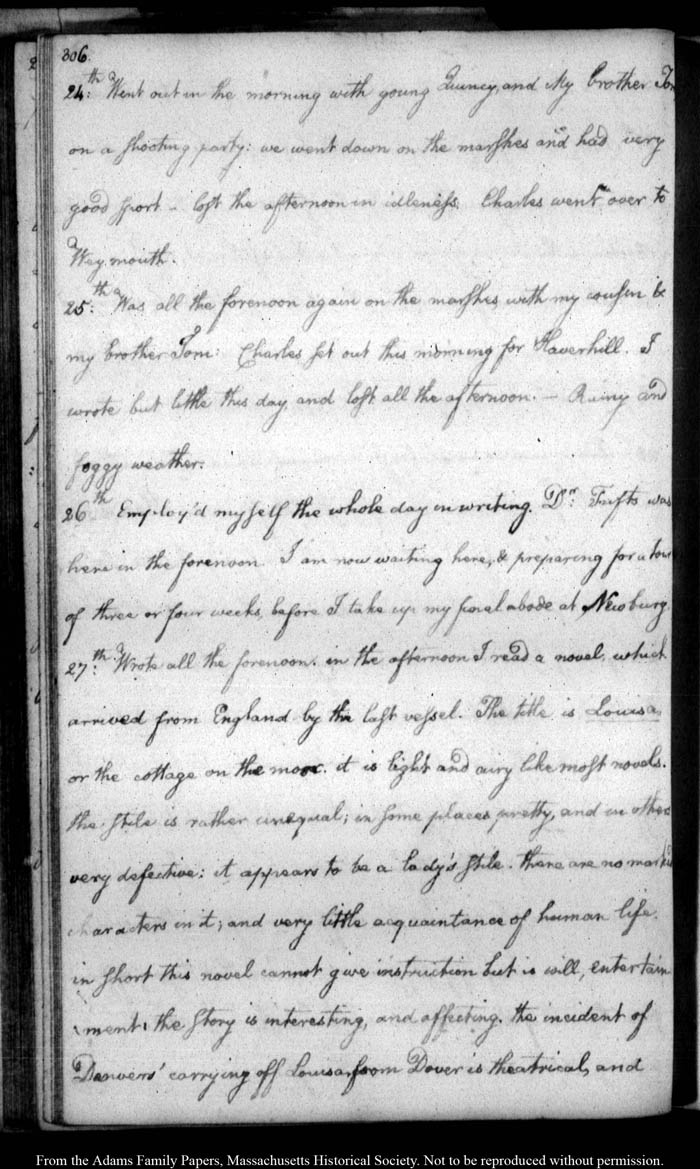 306.
24:th Went out in the morning with young Quincy, and My brother Tom
on a shooting party: we went down on the marshes and had very
good sport – lost the afternoon in idleness. Charles went over to
Weymouth.
25:th Was all the forenoon again on the marshes, with my cousin &
my brother Tom: Charles set out this morning for Haverhill. I
wrote but little this day, and lost all the afternoon. — Rainy and
foggy weather.
26th Employ'd myself the whole day in writing. Dr: Tufts was
here in the forenoon. I am now waiting here, & preparing for a tour
of three or four weeks, before I take up my final abode at Newbury.
27:th Wrote all the forenoon. in the afternoon I read a novel, which
arrived from England by the last vessel. The title is Louisa,
or the cottage on the moor. it is light and airy like most novels.
the stile is rather unequal; in some places pretty, and in others
very defective: it appears to be a lady's stile. there are no marked
characters in it; and very little acquaintance of human life.
in short this novel cannot give instruction but it will, entertain
ment: the story is interesting, and affecting. the incident of
Danvers' carrying off Louisa, from Dover is theatrical, and
From the Adams Family Papers, Massachusetts Historical Society. Not to be reproduced without permission.